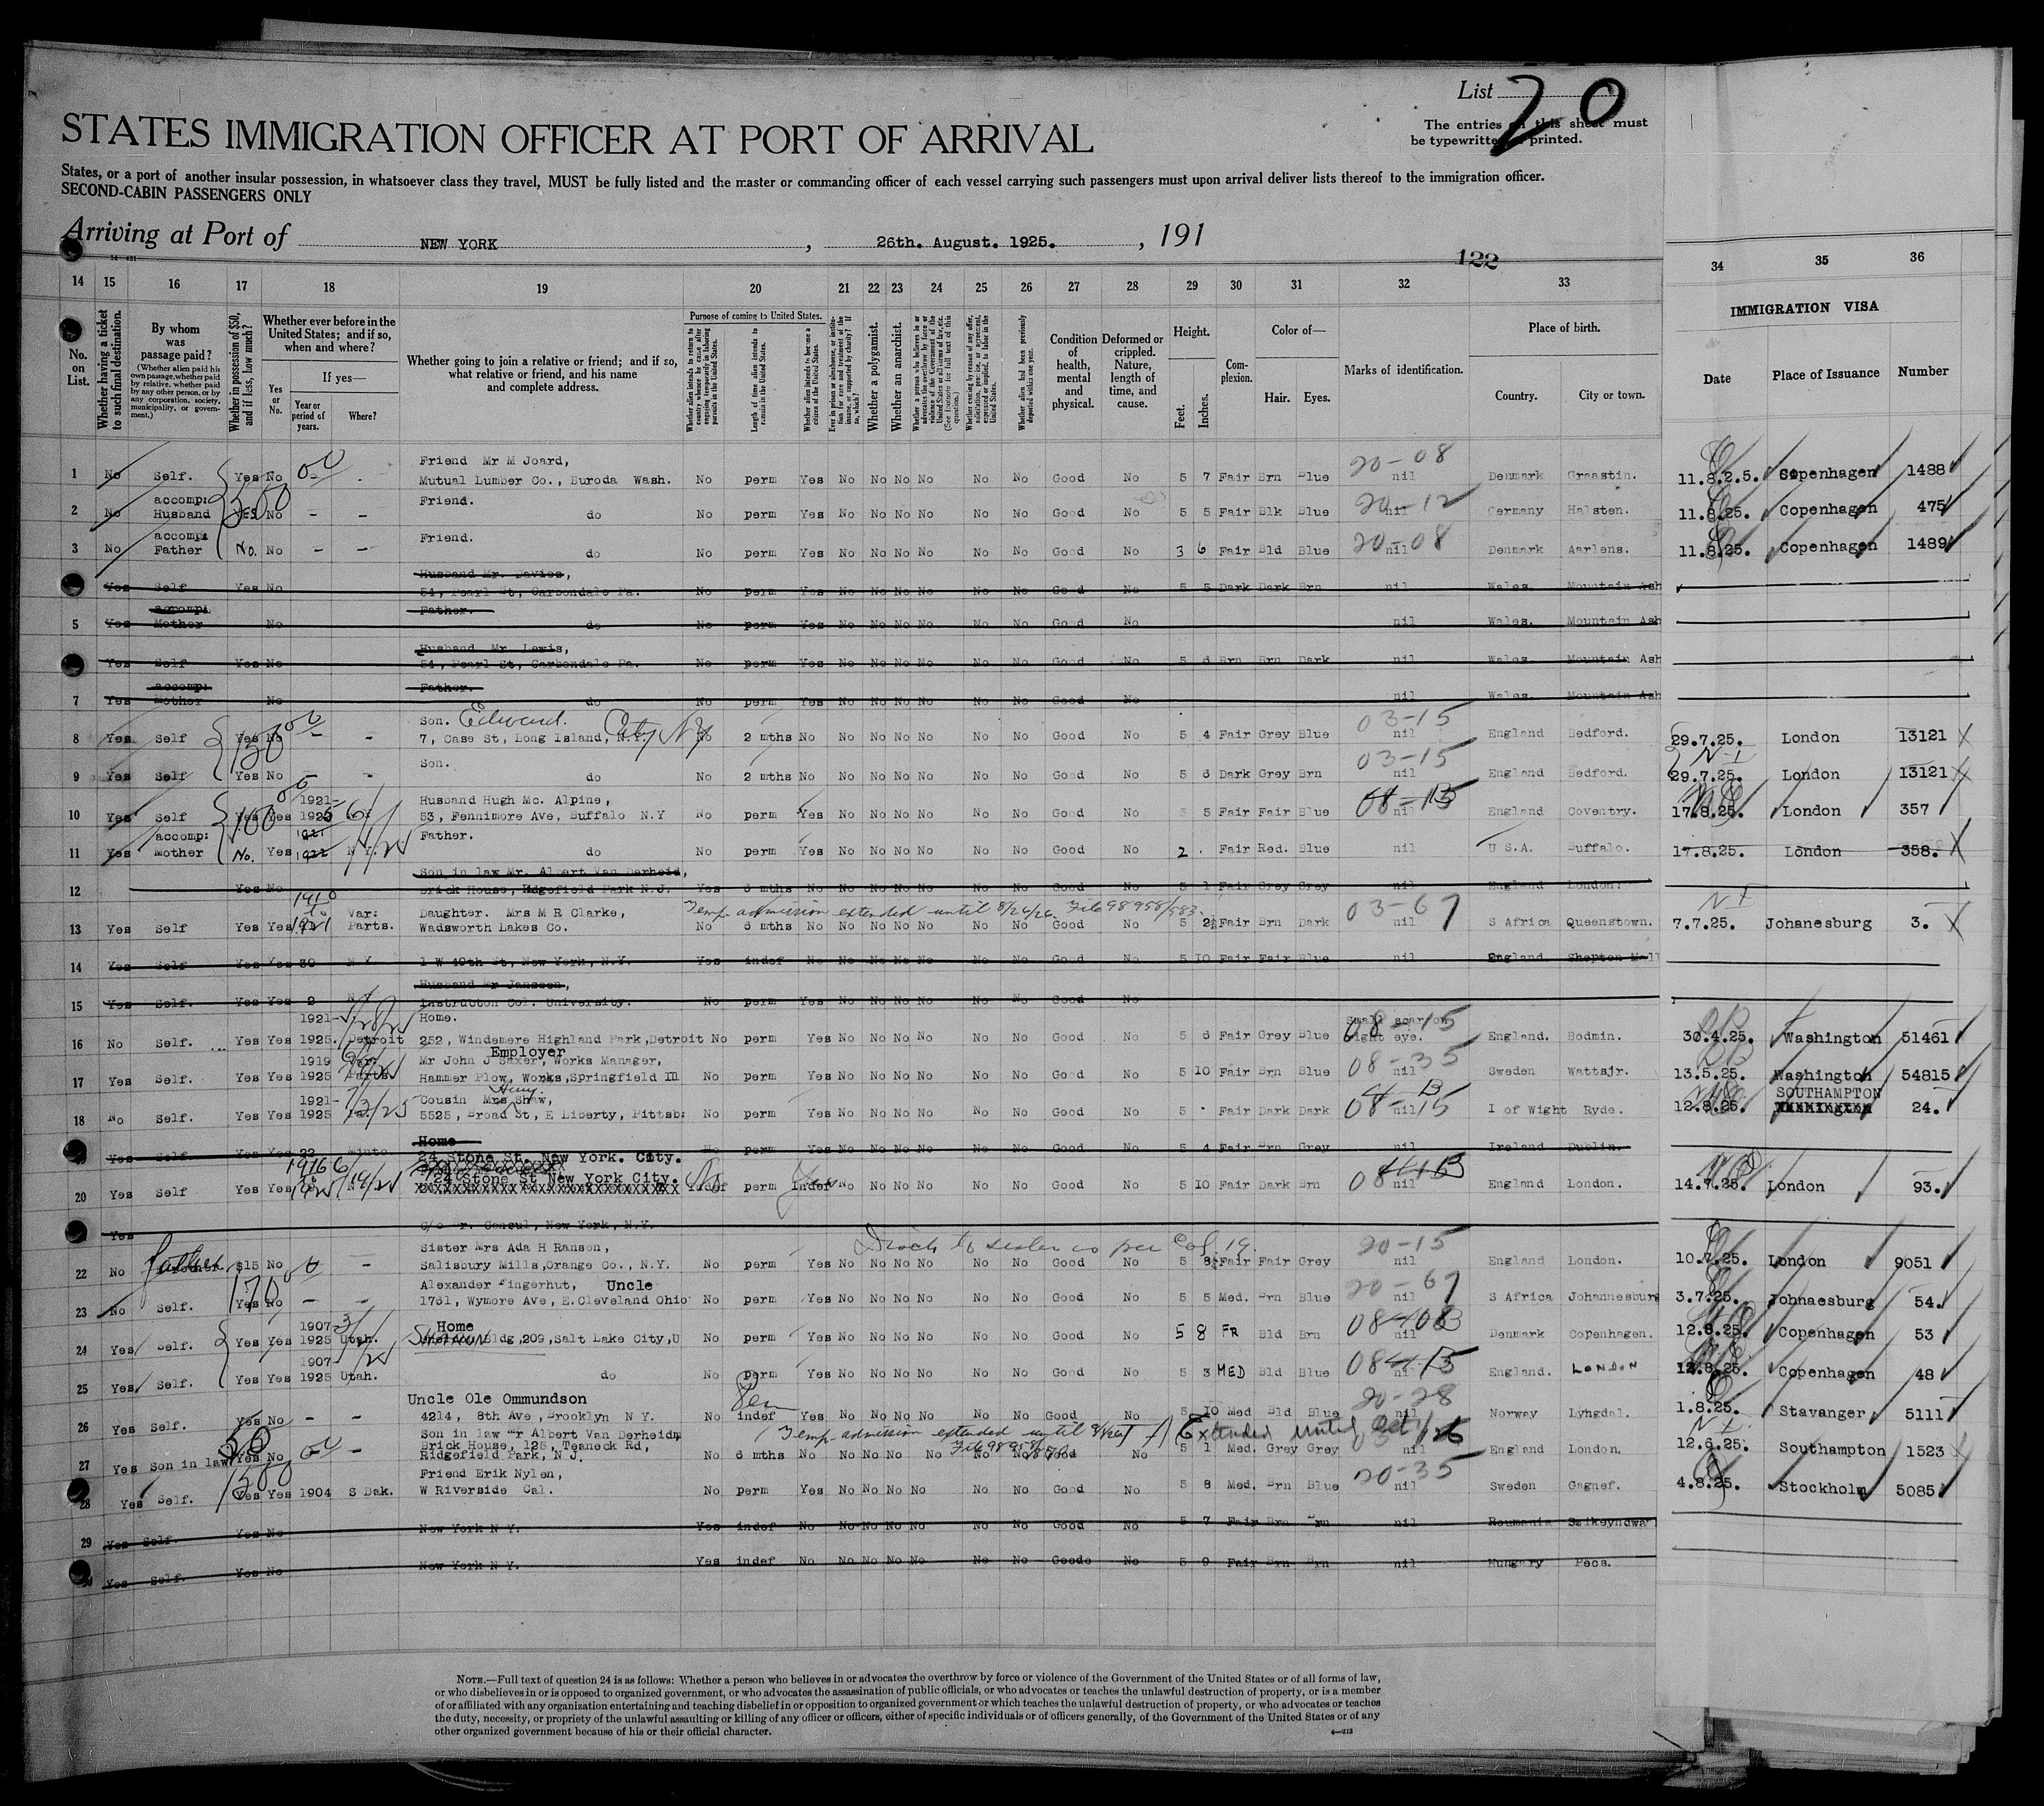 List 20
The entries on this sheet must
be typewritten or printed.
STATES IMMIGRATION OFFICER AT PORT OF ARRIVAL
States, or a port of another insular possession, in whatsoever class they travel, MUST be fully listed and the master or commanding officer of each vessel carrying such passengers must upon arrival deliver lists thereof to the immigration officer.
SECOND-CABIN PASSENGERS ONLY
Arriving at Port of NEW YORK, 26th. August. 1925., 191
122
14 15 16 17 18 19 20 21 22 23 24 25 26 27 28 29 30 31 32 33 34 35 36
No. on List.
Whether having a ticket to such final destination.
By whom was passage paid?
(Whether alien paid his own passage, whether paid by relative, whether paid by any other person, or by any corporation, society, municipality, or government.)
Whether in possession of $50, and if less, how much?
Whether ever before in the United States; and if so, when and where?
Yes or No.
If yes—
Year or period of years.
Where?
Whether going to join a relative or friend; and if so, what relative or friend, and his name and complete address.
Purpose of coming to United States.
Length of time alien intends to remain in the United States.
Whether alien intends to become a citizen of the United States.
Whether a polygamist.
Whether an anarchist.
Condition of health, mental and physical.
Deformed or crippled. Nature, length of time, and cause.
Height.
Feet.
Inches.
Complexion.
Color of—
Hair.
Eyes.
Marks of identification.
Place of birth.
Country.
City or town.
IMMIGRATION VISA
Date
Place of Issuance
Number
Friend Mr M Joard,
1 No Self. Yes No Mutual Lumber Co., Buroda Wash. No perm Yes No No No No No No Good No 5 7 Fair Brn Blue 20-08 nil Denmark Graastin. 11.8.2.5. Copenhagen 1488
accomp: Friend.
2 No Husband 500 YES No - - do No perm Yes No No No No No No Good No 5 5 Fair Blk Blue 20-12 nil Germany Halsten. 11.8.25. Copenhagen 475
accomp: Friend.
3 No Father No. No - - do No perm Yes No No No No No No Good No 3 6 Fair Bld Blue 20-08 nil Denmark Aarlens. 11.8.25. Copenhagen 1489
Husband Mr. Davies,
Yes Self Yes No 54, Pearl St, Carbondale Pa. No perm Yes No No No No No No Good No 5 5 Dark Dark Brn nil Wales. Mountain Ash
accomp: Father.
5 Yes Mother No do No perm Yes No No No No No No Good No nil Wales. Mountain Ash
Husband Mr. Lewis,
Yes Self Yes No 54, Pearl St, Carbondale Pa. No perm Yes No No No No No No Good No 5 6 Brn Brn Dark nil Wales. Mountain Ash
accomp: Father.
7 Yes Mother No do No perm Yes No No No No No No Good No nil Wales. Mountain Ash
Son. Edward.
8 Yes Self 150 Yes No - - 7, Case St, Long Island, N.Y. City NY No 2 mths No No No No No No No Good No 5 4 Fair Grey Blue 03-15 nil England Bedford. 29.7.25. London 13121
Son.
9 Yes Self Yes No - do No 2 mths No No No No No No No Good No 5 6 Dark Grey Brn 03-15 nil England Bedford. 29.7.25. London 13121
1921- Husband Hugh Mc. Alpine,
10 Yes Self 100 Yes Yes 1925 53, Fennimore Ave, Buffalo N.Y No perm Yes No No No No No No Good No 5 5 Fair Fair Blue 08-15 nil England Coventry. 17.8.25. London 357
accomp: 1921 Father.
11 Yes Mother No. Yes 1922 N Y. do No perm Yes No No No No No No Good No 2 . Fair Red. Blue nil U S.A. Buffalo. 17.8.25. London 358.
Son in law Mr. Albert Van Derheid,
12 Yes No Brick House, Ridgefield Park N.J. Yes 6 mths No No No No No No No Good No 5 1 Fair Grey Grey nil England London.
1910 Temp admission extended until 8/26/26. File 98958/583.
to Var: Daughter. Mrs M R Clarke,
13 Yes Self Yes Yes 1921 Parts. Wadsworth Lakes Co. No 6 mths No No No No No No No Good No 5 2½ Fair Brn Dark 03-67 nil S Africa Queenstown. 7.7.25. Johanesburg 3.
14 Yes Self Yes Yes 30 N Y. 1 W 40th St, New York, N.Y. Yes indef No No No No No No No Good No 5 10 Fair Fair Blue nil England. Shepton Mall
Husband Mr Janssen,
15 Yes Self. Yes Yes 2 N Y Instruction Col. University. No perm Yes No No No No No No Good No
1921- Home. Small scar on
16 No Self. Yes Yes 1925. Detroit 252, Windemere Highland Park, Detroit No perm Yes No No No No No No Good No 5 6 Fair Grey Blue 08-15 right eye. England. Bodmin. 30.4.25. Washington 51461
Employer
1919 Var: Mr John J Saxer, Works Manager,
17 Yes Self. Yes Yes 1925 Parts. Hammer Plow, Works, Springfield Ill No perm Yes No No No No No No Good No 5 10 Fair Brn Blue 08-35 nil Sweden Wattsjr. 13.5.25. Washington 54815
1921- 7/3/25 Cousin Mrs Shaw, SOUTHAMPTON
18 No Self. Yes Yes 1925 5525, Broad St, E Liberty, Pittsb: No perm Yes No No No No No No Good No 5 · Fair Dark Dark 08-15 nil I of Wight Ryde. 12.8.25. 24.
Home
Yes Self Yes Yes 22 Minto. No perm Yes No No No No No No Good No 5 4 Fair Brn Grey nil Ireland Dublin.
24 Stone St. New York. City.
1916 24 Stone St New York City.
20 Yes Self Yes Yes 1925 No perm Yes No No No No No No Good No 5 10 Fair Dark Brn nil England London. 14.7.25. London 93.
Yes C/o Mr. Consul, New York, N.Y.
Disch to sister as per Col. 19.
Sister Mrs Ada H Ranson,
22 No father $15 No - Salisbury Mills, Orange Co., N.Y. No perm Yes No No No No No No Good No 5 8½ Fair Fair Grey 20-15 nil England London. 10.7.25. London 9051
Alexander Fingerhut, Uncle
23 No Self. 170 Yes No - - 1731, Wymore Ave, E. Cleveland Ohio No perm Yes No No No No No No Good No 5 5 Med. Brn Blue 20-67 nil S Africa Johannesburg 3.7.25. Johnaesburg 54.
1907- Home
24 Yes Self. Yes Yes 1925 Utah. SHARON Bldg, 209, Salt Lake City, U No perm Yes No No No No No No Good No 5 8 FR Bld Brn 08-08 nil Denmark Copenhagen. 12.8.25. Copenhagen 53
1907
25 Yes Self. Yes Yes 1925 Utah. do No perm Yes No No No No No No Good No 5 3 MED Bld Blue 08-15 nil England. LONDON 12.8.25. Copenhagen 48
Uncle Ole Ommundson
26 Yes Self. Yes No - - 4214, 8th Ave, Brooklyn N Y. No indef Perm Yes No No No No No No Good No 5 10 Med Bld Blue 20-28 nil Norway Lyhgdal. 1.8.25. Stavanger 5111
Son in law Mr Albert Van Derheidm Temp admission extended until Extended until
Brick House, 125, Teaneck Rd,
27 Yes Son in law 50 Yes No - Ridgefield Park, N J. No 6 mths No No No No No No No Good No 5 1 Med. Grey Grey nil England London. 12.6.25. Southampton 1523
Friend Erik Nylen,
28 Yes Self. 1500 Yes Yes 1904 S Dak. W Riverside Cal. No perm Yes No No No No No No Good No 5 8 Med. Brn Blue 20-35 nil Sweden Gagnef. 4.8.25. Stockholm 5085
29 Yes Self. Yes No New York N Y. Yes indef No No No No No No No Good No 5 7 Fair Brn Brn nil Roumania
Yes Self. Yes No New York N Y. Yes indef No No No No No No No Goodo No 5 9 Fair Brn Brn nil Hungary Pecs.
NOTE.—Full text of question 24 is as follows: Whether a person who believes in or advocates the overthrow by force or violence of the Government of the United States or of all forms of law,
or who disbelieves in or is opposed to organized government, or who advocates the assassination of public officials, or who advocates or teaches the unlawful destruction of property, or is a member
of or affiliated with any organization entertaining and teaching disbelief in or opposition to organized government or which teaches the unlawful destruction of property, or who advocates or teaches
the duty, necessity, or propriety of the unlawful assaulting or killing of any officer or officers, either of specific individuals or of officers generally, of the Government of the United States or of any
other organized government because of his or their official character.
4—213